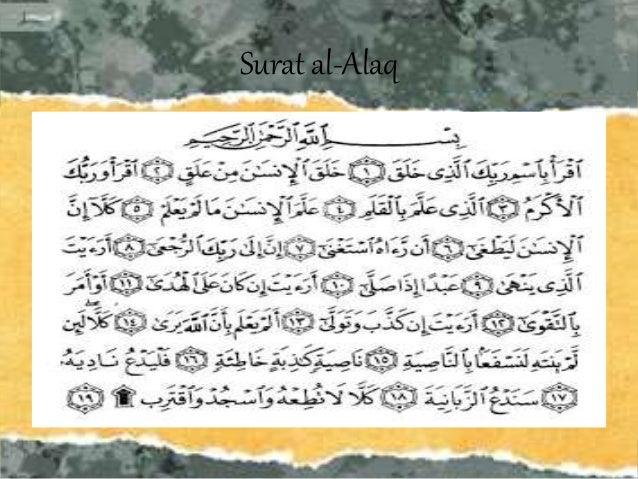 Surat al-Alaq
بِسْمِ ٱللَّهِ ٱلرَّحْمَٰنِ ٱلرَّحِيمِ
ٱقْرَأْ بِٱسْمِ رَبِّكَ ٱلَّذِى خَلَقَ ١ خَلَقَ ٱلْإِنسَٰنَ مِنْ عَلَقٍ ٢ ٱقْرَأْ وَرَبُّكَ
ٱلْأَكْرَمُ ٣ ٱلَّذِى عَلَّمَ بِٱلْقَلَمِ ٤ عَلَّمَ ٱلْإِنسَٰنَ مَا لَمْ يَعْلَمْ ٥ كَلَّآ إِنَّ
ٱلْإِنسَٰنَ لَيَطْغَىٰٓ ٦ أَن رَّءَاهُ ٱسْتَغْنَىٰٓ ٧ إِنَّ إِلَىٰ رَبِّكَ ٱلرُّجْعَىٰٓ ٨ أَرَءَيْتَ
ٱلَّذِى يَنْهَىٰ ٩ عَبْدًا إِذَا صَلَّىٰٓ ١٠ أَرَءَيْتَ إِن كَانَ عَلَى ٱلْهُدَىٰٓ ١١ أَوْ أَمَرَ
بِٱلتَّقْوَىٰٓ ١٢ أَرَءَيْتَ إِن كَذَّبَ وَتَوَلَّىٰٓ ١٣ أَلَمْ يَعْلَم بِأَنَّ ٱللَّهَ يَرَىٰ ١٤ كَلَّا لَئِن
لَّمْ يَنتَهِ لَنَسْفَعًۢا بِٱلنَّاصِيَةِ ١٥ نَاصِيَةٍ كَٰذِبَةٍ خَاطِئَةٍ ١٦ فَلْيَدْعُ نَادِيَهُۥ
١٧ سَنَدْعُ ٱلزَّبَانِيَةَ ١٨ كَلَّا لَا تُطِعْهُ وَٱسْجُدْ وَٱقْتَرِب ۩ ١٩